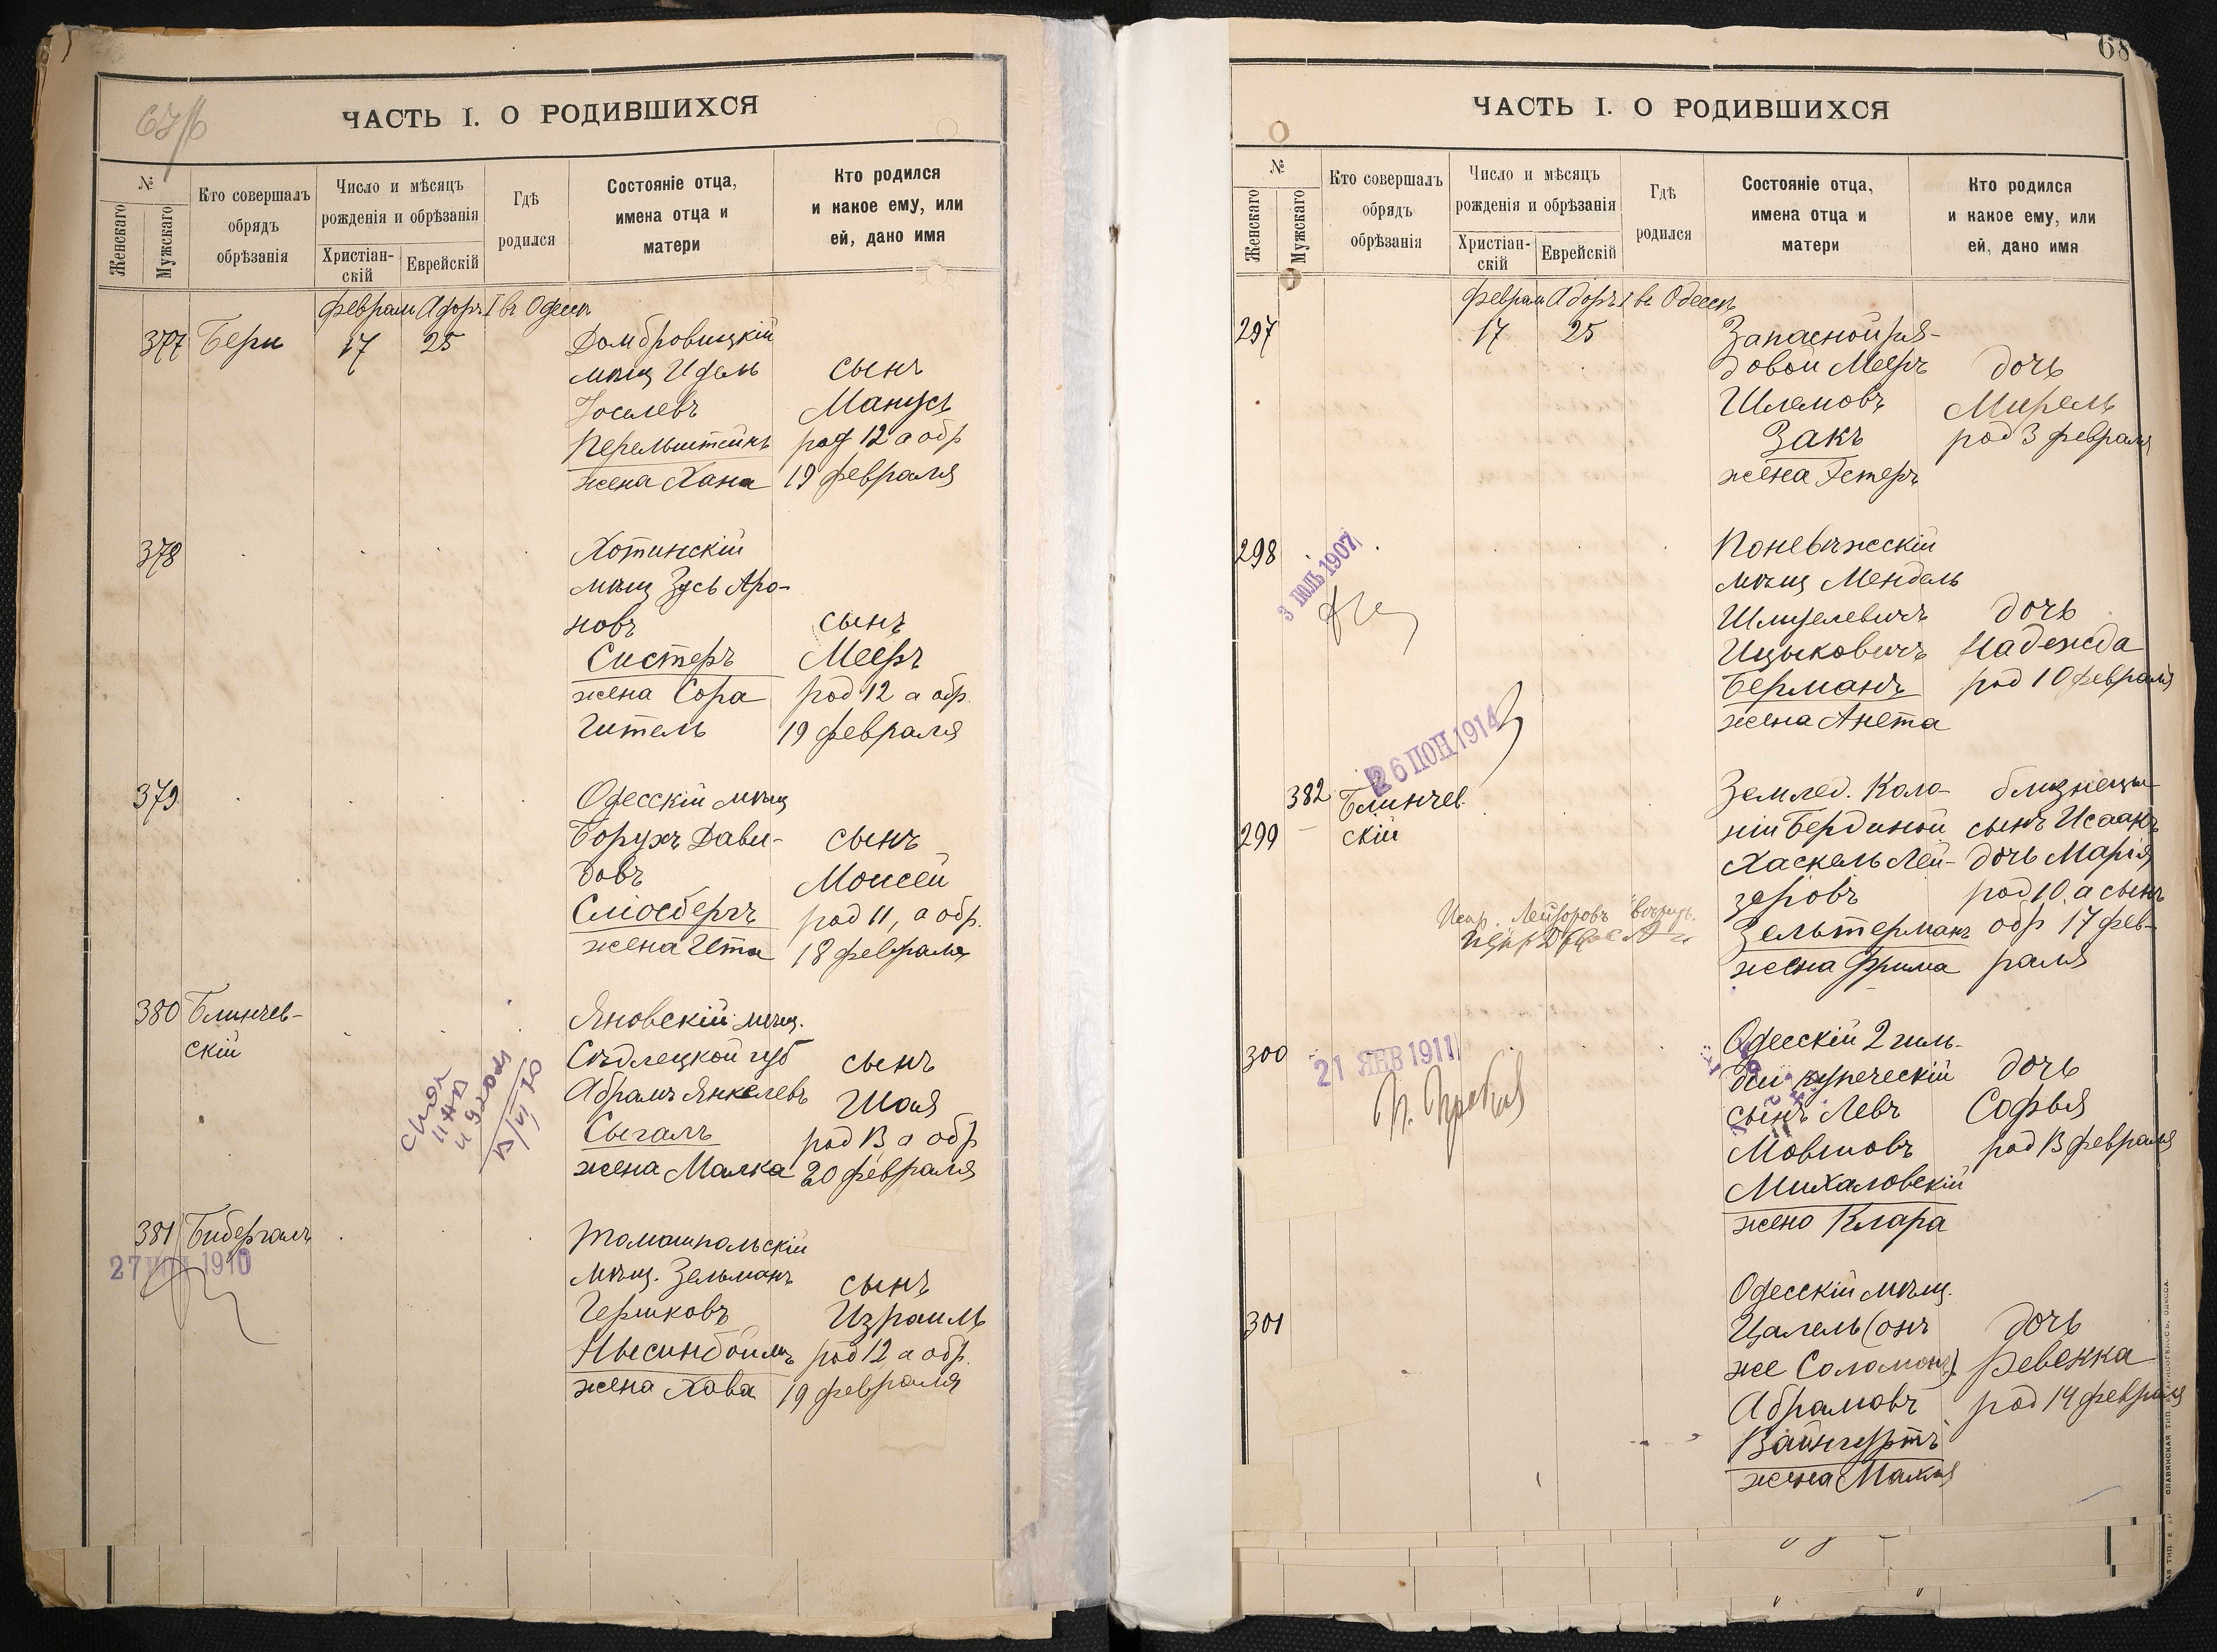 ЧАСТЬ I. О РОДИВШИХСЯ
№
Женскаго
Мужскаго
Кто совершалъ
обрядъ
обрѣзанія
Число и мѣсяцъ
рожденія и обрѣзанія
Христіан-
скій
Еврейскій
Гдѣ
родился
Состояніе отца,
имена отца и
матери
Кто родился
и какое ему, или
ей, дано имя
Адоръ I въ Одессѣ
377 17 25 Домбровицкій
мѣщ Идель сынъ
Іоселевъ Манусъ
Перельштейнъ род 12 а обр
жена Хана 19 февраля
378 Хотинскій
мѣщ Зусь Аро-
новъ сынъ
Систеръ Мееръ
жена Сора род 12 а обр.
Гитель 19 февраля
379 Одесскій мѣщ
Борухъ Дави- сынъ
довъ Моисей
Сліосбергъ род 11, а обр.
жена Ита 18 февраля
380 Блинчев- Яновскій мѣщ.
скій Сѣдлецкой губ сынъ
Абрамъ Янкелевъ Шая
Сыгалъ род 13 а обр
жена Малка 20 февраля
381 Бибергалъ Томашпольскій
27 1910
мѣщ. Зельманъ сынъ
Гершковъ Израиль
род 12 а обр.
жена Хава 19 февраля
68
ЧАСТЬ I. О РОДИВШИХСЯ
№
Женскаго
Мужскаго
Кто совершалъ
обрядъ
обрѣзанія
Число и мѣсяцъ
рожденія и обрѣзанія
Христіан-
скій
Еврейскій
Гдѣ
родился
Состояніе отца,
имена отца и
матери
Кто родился
и какое ему, или
ей, дано имя
Адоръ I въ Одессѣ
297 17 25 Запасной ря-
довой Мееръ дочь
Шлемовъ Мирель
Закъ род 3 февраля
жена Эстеръ
298 Поневѣжскій
3 ІЮЛЬ 1907
мѣщ Мендель
дочь
Ицыковичъ Надежда
Берманъ род 10 февраля
жена Анета
26 1914
382 Блинчев- Землед. Коло- близнецы
299 скій ніи Бердиной сынъ Исаакъ
Хаскель Лей- дочь Марія
зеровъ род 10 а сынъ
Зельтерманъ обр 17 фев-
жена Фрима раля
300 Одесскій 2 гиль-
21 ЯНВ 1911
діи купеческій дочь
сынъ Левъ Софья
Мовшовъ род 13 февраля
Михаловскій
жена Клара
Одесскій мѣщ.
301 Цалель (онъ дочь
же Соломонъ) Ревекка
Абрамовъ род 14 февраля
Вайнгуртъ
жена